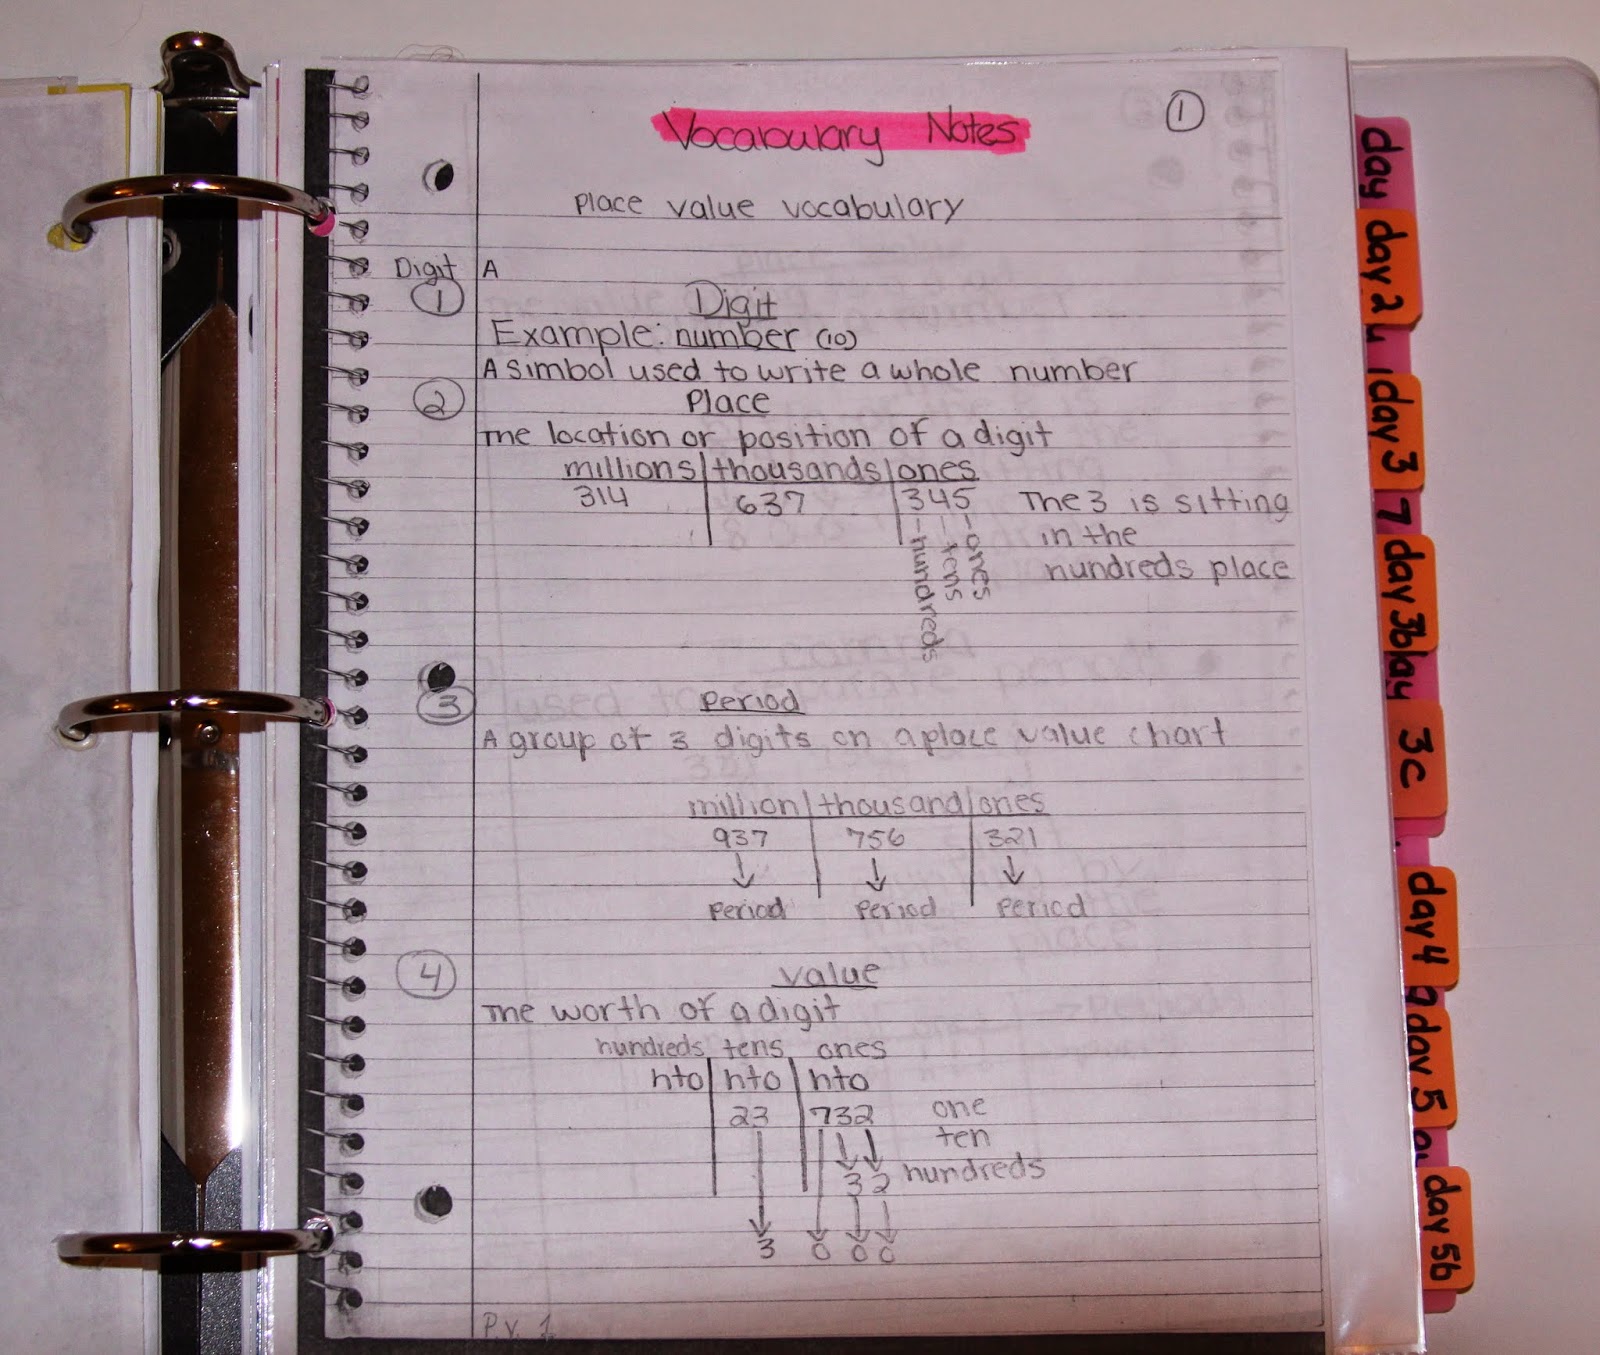 Vocabulary Notes
1
Place value vocabulary
Digit A
1 Digit
Example: number (10)
A simbol used to write a whole number
2 Place
The location or position of a digit
millions thousands ones
314 637 345 The 3 is sitting
in the
hundreds place
hundreds tens ones
3 Period
A group of 3 digits on a place value chart
million thousand ones
937 756 321
Period Period Period
4 value
The worth of a digit
hundreds tens ones
hto hto hto
23 732 one
ten
3 2 hundreds
3 0 0 0
P.v. 1
day
day 2
day 3
7
day 3b
day
3c
day 4
day 5
day 5b